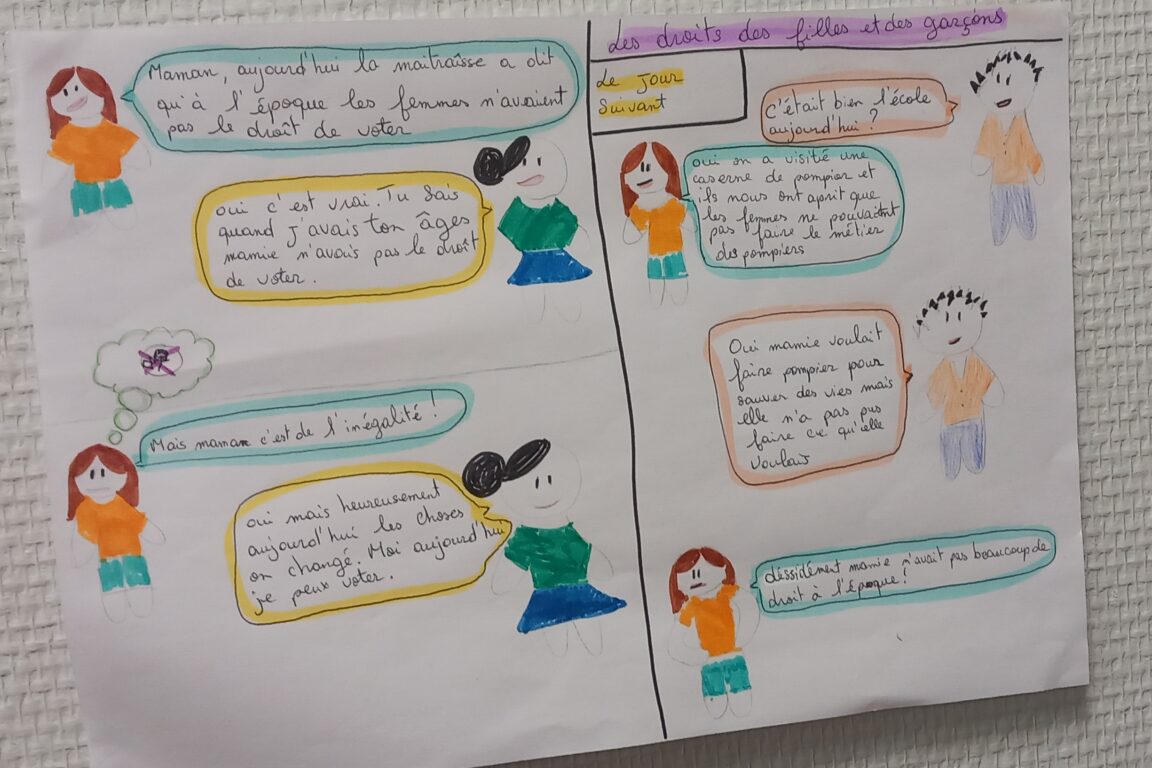 Les droits des filles et des garçons
Maman, aujourd'hui la maitraîsse a dit
qu'à l'époque les femmes n'avaient
pas le droît de voter
oui c'est vrai. Tu sais
quand j'avais ton âges
mamie n'avais pas le droît
de voter.
Mais maman c'est de l'inégalité !
oui mais heureusement
aujourd'hui les choses
on changé. Moi aujourd'hui
je peux voter.
Le Jour
Suivant
C'était bien l'école
aujourd'hui ?
oui on a visitié une
caserne de pompier et
ils nous ont aprit que
les femmes ne pouvaient
pas faire le métier
des pompiers
Oui mamie voulait
faire pompier pour
sauver des vies mais
elle n'a pas pus
faire ce qu'elle
voulais
déssidément mamie n'avait pas beaucoup de
droit à l'époque !